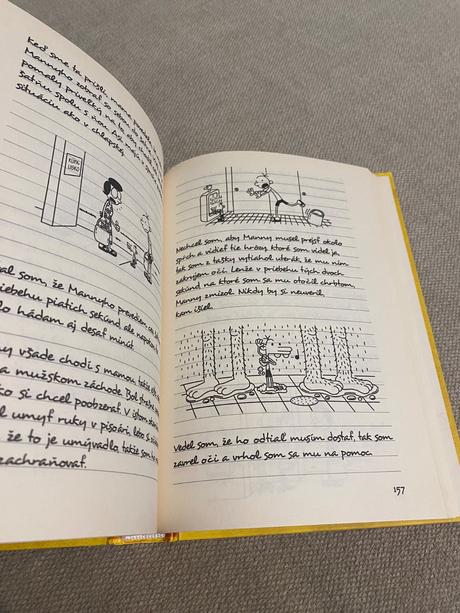 Keď sme ta prišli, mama
Mannyho zobrať so sebou do
pomaly priveľký na to, aby
šatňu spolu s ňou. Asi
situáciu ako v chlapsky
KÚPA
LISKO
som, že Mannyho prevediem cez
priebehu piatich sekúnd, ale napokon
to hádam aj desať minút.
všade chodí s mamou, takže
na mužskom záchode. Bol
si chcel poobzerať. V istom
umyť ruky v pisoári, lebo si
že to je umývadlo, takže som
zachraňovať.
Nechcel som, aby Manny musel prejsť okolo
spŕch a vidieť tie hrôzy, ktoré som videl ja,
tak som z tašky vytiahol uterák, že mu ním
zakryjem oči. Lenže v priebehu tých dvoch
sekúnd, na ktoré som sa mu otočil chrbtom,
Manny zmizol. Nikdy by si neuveril,
kam išiel.
Vedel som, že ho odtiaľ musím dostať, tak som
zavrel oči a vrhol som sa mu na pomoc.
157